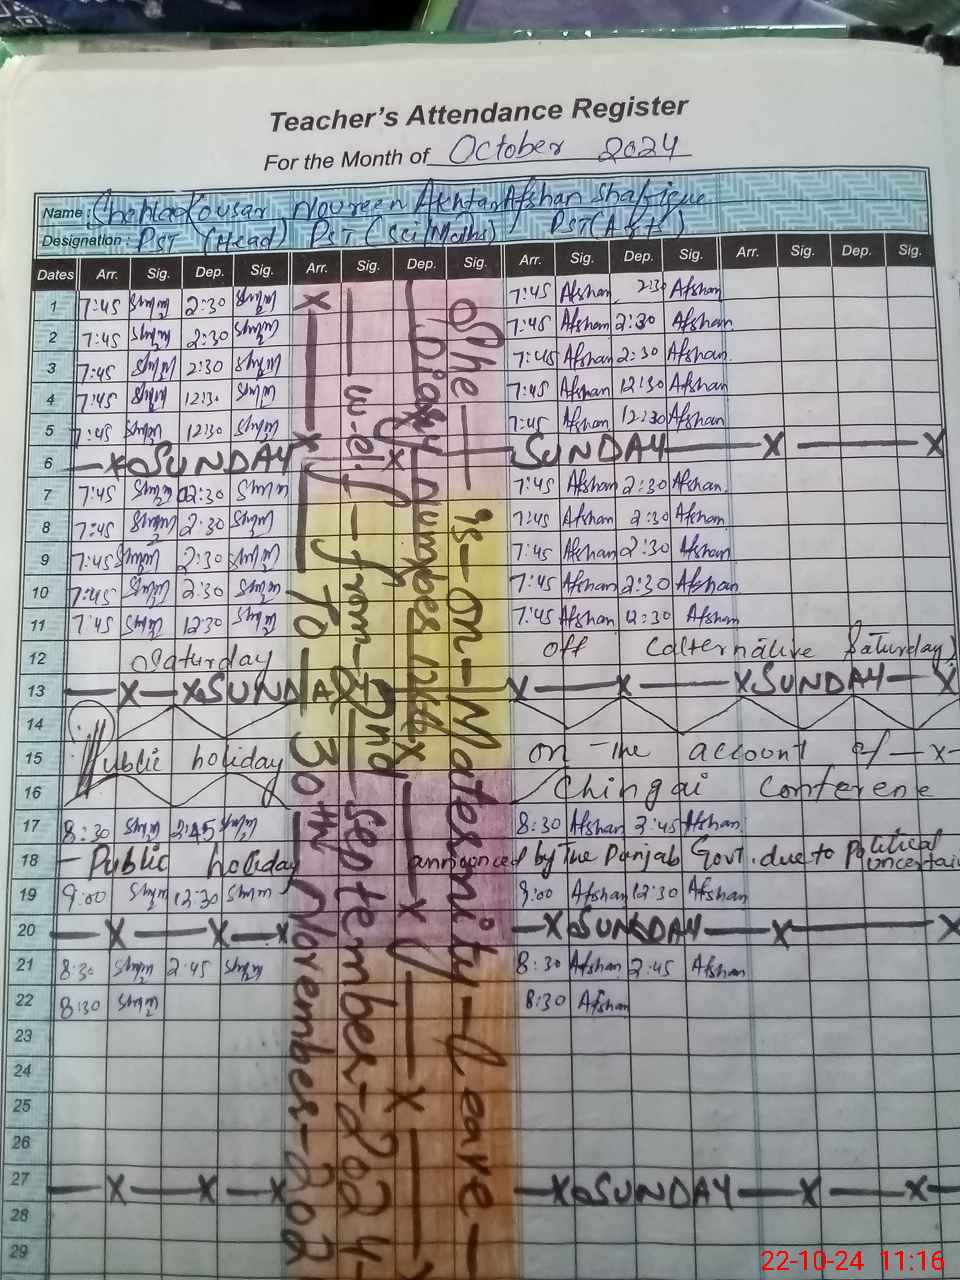 Teacher's Attendance Register
For the Month of October 2024
Name : Shehla Kousar Noureen Akhtar Afshan Shafique
Designation : PST (Head) PST (Sci/Maths) PST (Arts)
Dates Arr. Sig. Dep. Sig. Arr. Sig. Dep. Sig. Arr. Sig. Dep. Sig. Arr. Sig. Dep. Sig.
1 7:45 2:30 7:45 Afshan 2:30 Afshan
2 7:45 2:30 7:45 Afshan 2:30 Afshan
3 7:45 2:30 7:45 Afshan 2:30 Afshan
4 7:45 12:30 7:45 Afshan 12:30 Afshan
5 7:45 12:30 7:45 Afshan 12:30 Afshan
6 SUNDAY SUNDAY
7 7:45 2:30 7:45 Afshan 2:30 Afshan
8 7:45 2:30 7:45 Afshan 2:30 Afshan
9 7:45 2:30 7:45 Afshan 2:30 Afshan
10 7:45 2:30 7:45 Afshan 2:30 Afshan
11 7:45 12:30 7:45 Afshan 12:30 Afshan
12 Saturday off (alternative Saturday)
13 SUNDAY SUNDAY
14
15 Public holiday on the account of
16 Chingai Conference
17 8:30 2:45 8:30 Afshan 2:45 Afshan
18 Public holiday announced by the Punjab Govt. due to Political
uncertai
19 9:00 12:30 9:00 Afshan 12:30 Afshan
20 SUNDAY
21 8:30 2:45 8:30 Afshan 2:45 Afshan
22 8:30 8:30 Afshan
23
24
25
26
27 SUNDAY
28
29
She is on Maternity leave
Diary Number
w.e.f from 2nd September 2024
To 30th November 202
22-10-24 11:16